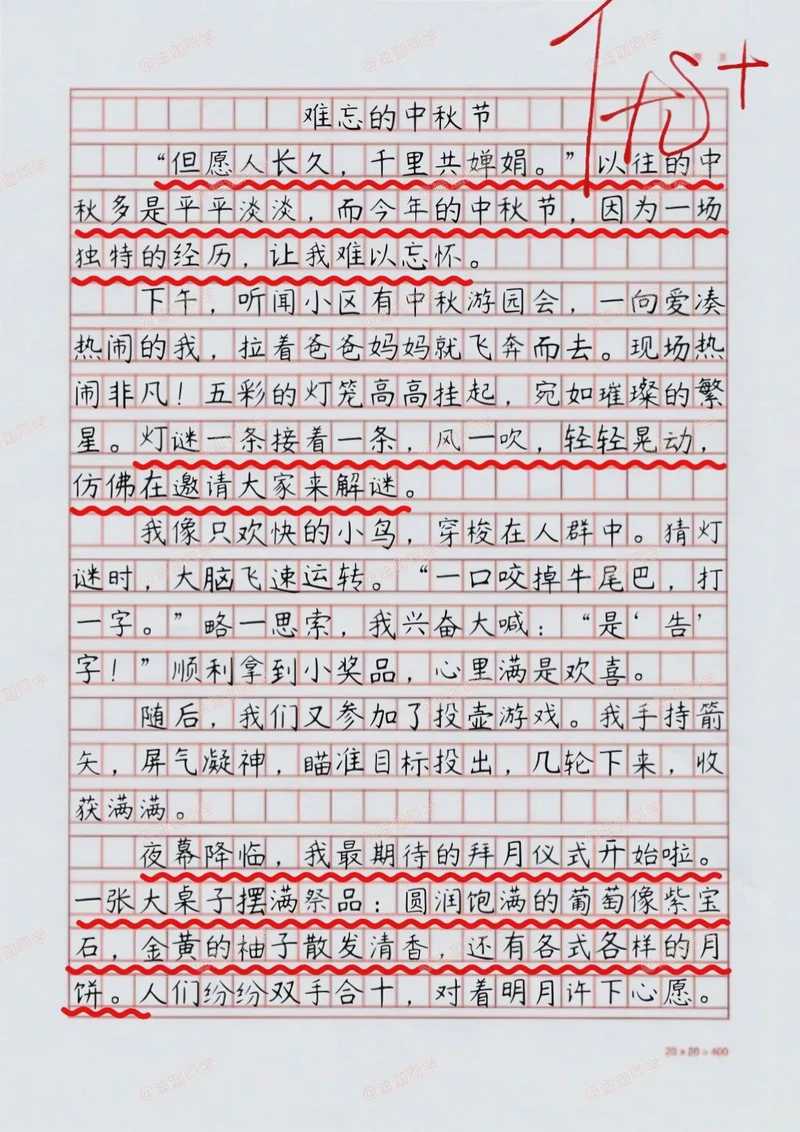 优+
难忘的中秋节
“但愿人长久，千里共婵娟。”以往的中
秋多是平平淡淡，而今年的中秋节，因为一场
独特的经历，让我难以忘怀。
下午，听闻小区有中秋游园会，一向爱凑
热闹的我，拉着爸爸妈妈就飞奔而去。现场热
闹非凡！五彩的灯笼高高挂起，宛如璀璨的繁
星。灯谜一条接着一条，风一吹，轻轻晃动，
仿佛在邀请大家来解谜。
我像只欢快的小鸟，穿梭在人群中。猜灯
谜时，大脑飞速运转。“一口咬掉牛尾巴，打
一字。”略一思索，我兴奋大喊：“是‘告’
字！”顺利拿到小奖品，心里满是欢喜。
随后，我们又参加了投壶游戏。我手持箭
矢，屏气凝神，瞄准目标投出，几轮下来，收
获满满。
夜幕降临，我最期待的拜月仪式开始啦。
一张大桌子摆满祭品：圆润饱满的葡萄像紫宝
石，金黄的柚子散发清香，还有各式各样的月
饼。人们纷纷双手合十，对着明月许下心愿。
20×20=400